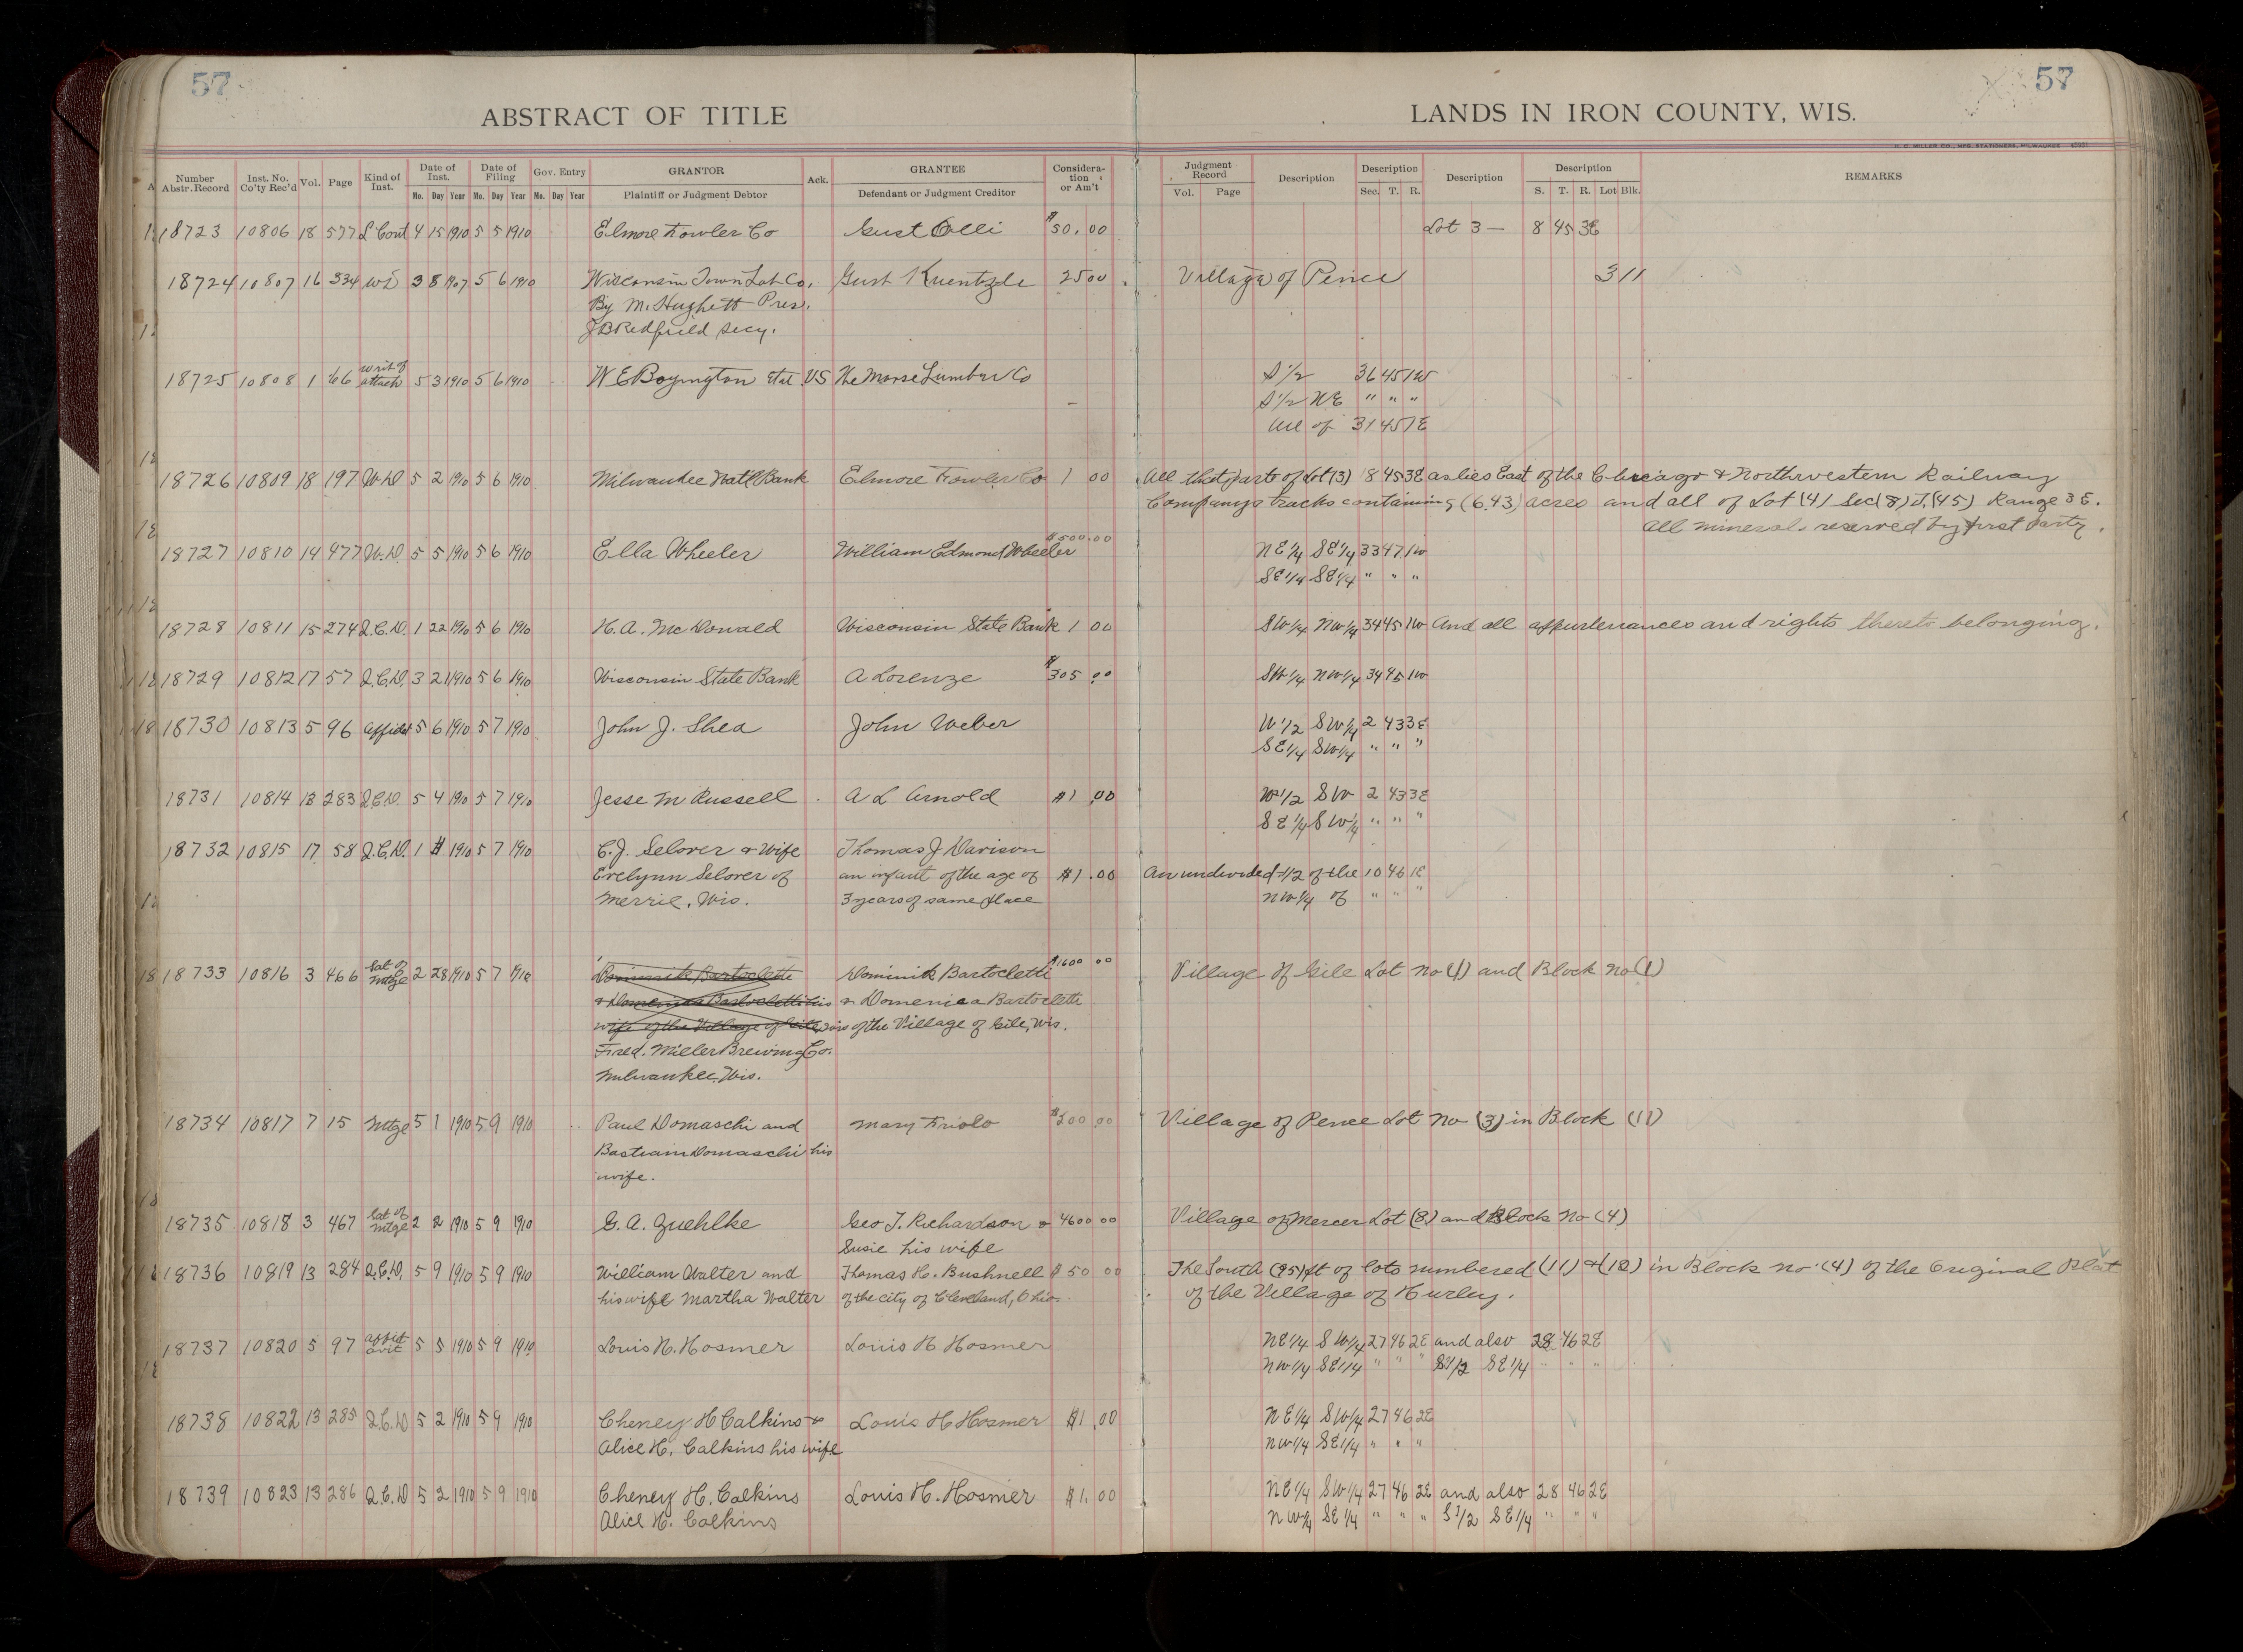 57
57
ABSTRACT OF TITLE
LANDS IN IRON COUNTY, WIS.
H. C. MILLER CO., MFG. STATIONERS, MILWAUKEE
Number Abstr.Record Inst. No. Co'ty Rec'd Vol. Page Kind of Inst. Date of Inst. Mo. Day Year Date of Filing Mo. Day Year Gov. Entry Mo. Day Year GRANTOR Plaintiff or Judgment Debtor Ack. GRANTEE Defendant or Judgment Creditor Considera-tion or Am't Judgment Record Vol. Page Description Description Sec. T. R. Description Description S. T. R. Lot Blk. REMARKS
18723 10806 18 577 L Cont 4 15 1910 5 5 1910 Elmore Fowler Co Gust Olli $50.00 Lot 3 — 8 45 3E
18724 10807 16 334 WD 3 8 1907 5 6 1910 Wisconsin Town Lot Co. Gust Kuentzle 25 00 Village of Pence 3 11
By M. Hughett Pres.
J B Redfield Secy.
18725 10808 1 66 writ of attach 5 3 1910 5 6 1910 W E Boyington et al VS The Morse Lumber Co S 1/2 36 45 1W
S 1/2 NE " " "
All of 31 45 1E
18726 10809 18 197 W.D 5 2 1910 5 6 1910 Milwaukee Nat'l Bank Elmore Fowler Co 1 00 All that parts of Lot (3) 8 45 3E as lies East of the Chicago & Northwestern Railway
Companys tracks containing (6.43) acres and all of Lot (4) Sec (8) T. (45) Range 3 E.
All minerals reserved by first party.
18727 10810 14 477 W.D. 5 5 1910 5 6 1910 Ella Wheeler William Edmond Wheeler $500.00 NE 1/4 SE 1/4 33 47 1W
SE 1/4 SE 1/4 " " "
18728 10811 15 274 Q.C.D. 1 22 1910 5 6 1910 H. A. McDonald Wisconsin State Bank 1 00 SW 1/4 NW 1/4 34 45 1W And all appurtenances and rights thereto belonging.
18729 10812 17 57 Q.C.D. 3 21 1910 5 6 1910 Wisconsin State Bank A Lorenze $305.00 SW 1/4 NW 1/4 34 45 1W
18730 10813 5 96 Affidvt 5 6 1910 5 7 1910 John J. Shea John Weber W 1/2 SW 1/4 2 43 3E
SE 1/4 SW 1/4 " " "
18731 10814 13 283 Q.C.D. 5 4 1910 5 7 1910 Jesse M Russell A L Arnold $1.00 W 1/2 SW 2 43 3E
SE 1/4 SW 1/4 " " "
18732 10815 17 58 Q.C.D. 1 1910 5 7 1910 C. J. Selover & Wife Thomas J Davison
Evelynn Selover of an infant of the age of $1.00 An undivided 1/2 of the 10 46 1E
Merril, Wis. 3 years of same place NW 1/4 of " " "
18733 10816 3 466 Sat of Mtge 2 28 1910 5 7 1910 Dominik Bartoletti Dominik Bartocletti $1600 00 Village of Gile Lot No (1) and Block No (1)
& Domenica Bartocletti his & Domenica Bartocletti
wife of the Village of Gile, Wis of the Village of Gile, Wis.
Fred. Miller Brewing Co.
Milwaukee, Wis.
18734 10817 7 15 Mtge 5 1 1910 5 9 1910 Paul Domaschi and Mary Friolo $200.00 Village of Pence Lot No (3) in Block (11)
Bastiam Domaschi his
wife.
18735 10818 3 467 Sat of Mtge 2 2 1910 5 9 1910 G. A. Zuehlke Geo T. Richardson & 4600 00 Village of Mercer Lot (8) and Block No (4)
Susie his wife
18736 10819 13 284 Q.C.D. 5 9 1910 5 9 1910 William Walter and Thomas H. Bushnell $50 00 The South (95) ft of lots numbered (11) & (12) in Block no. (4) of the Original Plat
his wife Martha Walter of the city of Cleveland, Ohio. of the Village of Hurley.
18737 10820 5 97 affid avit 5 5 1910 5 9 1910 Louis H. Hosmer Louis H Hosmer NE 1/4 SW 1/4 27 46 2E and also 28 46 2E
NW 1/4 SE 1/4 " " " S 1/2 SE 1/4 " " "
18738 10822 13 285 Q.C.D 5 2 1910 5 9 1910 Cheney H Calkins & Louis H Hosmer $1.00 NE 1/4 SW 1/4 27 46 2E
Alice H. Calkins his wife NW 1/4 SE 1/4 " " "
18739 10823 13 286 Q.C.D 5 2 1910 5 9 1910 Cheney H. Calkins Louis H. Hosmer $1.00 NE 1/4 SW 1/4 27 46 2E and also 28 46 2E
Alice H. Calkins NW 1/4 SE 1/4 " " " S 1/2 SE 1/4 " " "